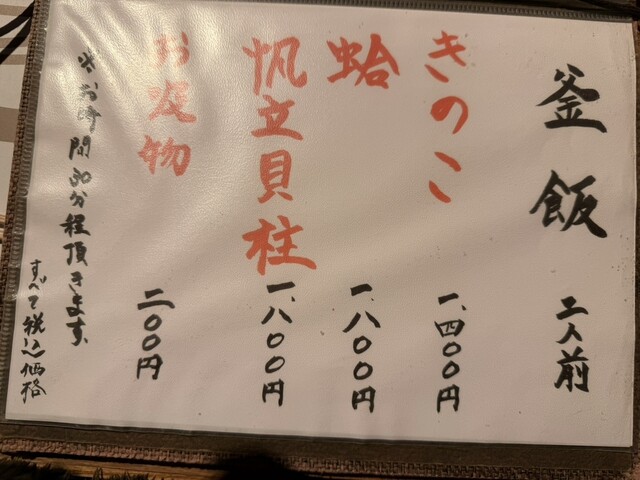 釜飯 二人前
きのこ 一、四〇〇円
蛤 一、八〇〇円
帆立貝柱 一、八〇〇円
お吸物 二〇〇円
※お時間30分程頂きます、
すべて税込価格